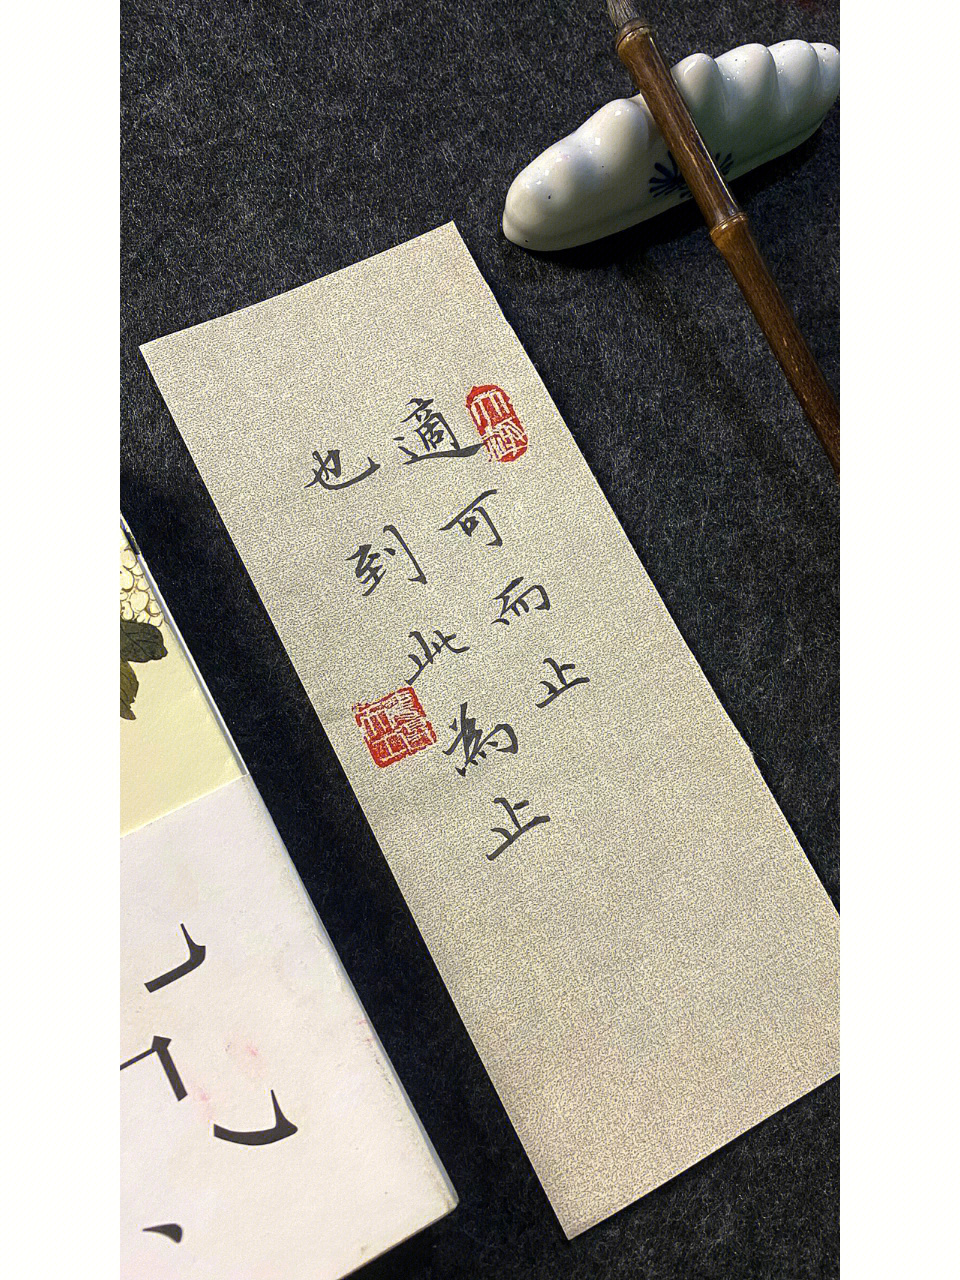 適可而止
也到此為止